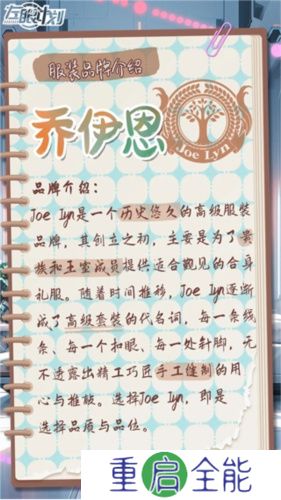 左眼计划
服装品牌介绍
乔伊恩
Joe Lyn
品牌介绍:
Joe Lyn是一个历史悠久的高级服装
品牌,其创立之初,主要是为了贵
族和王室成员提供适合觐见的合身
礼服。随着时间推移,Joe Lyn逐渐
成了高级套装的代名词,每一条线
条、每一个扣眼、每一处针脚,无
不透露出精工巧匠手工缝制的用
心与推敲。选择Joe Lyn,即是
选择品质与品位。
重启全能